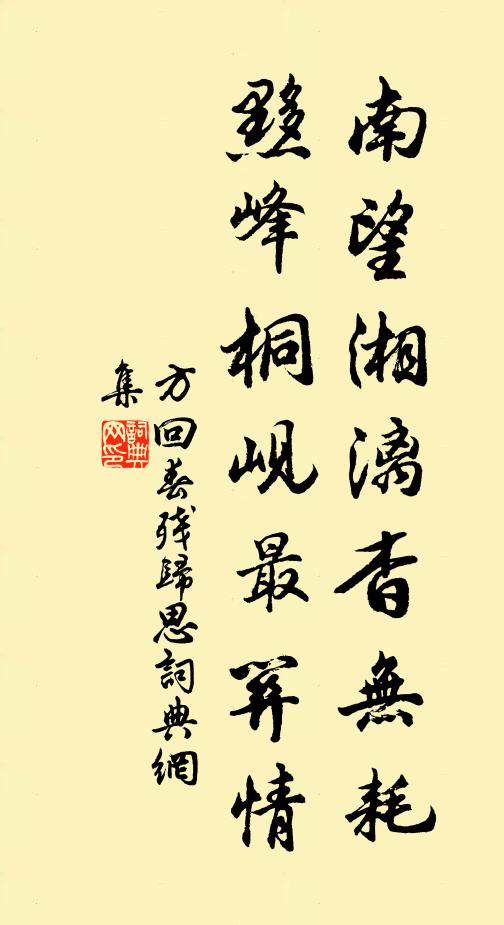 南望湘漓杳無耗
黟峰桐峴最關情
方回春殘歸思詞典網
集
詞典网印